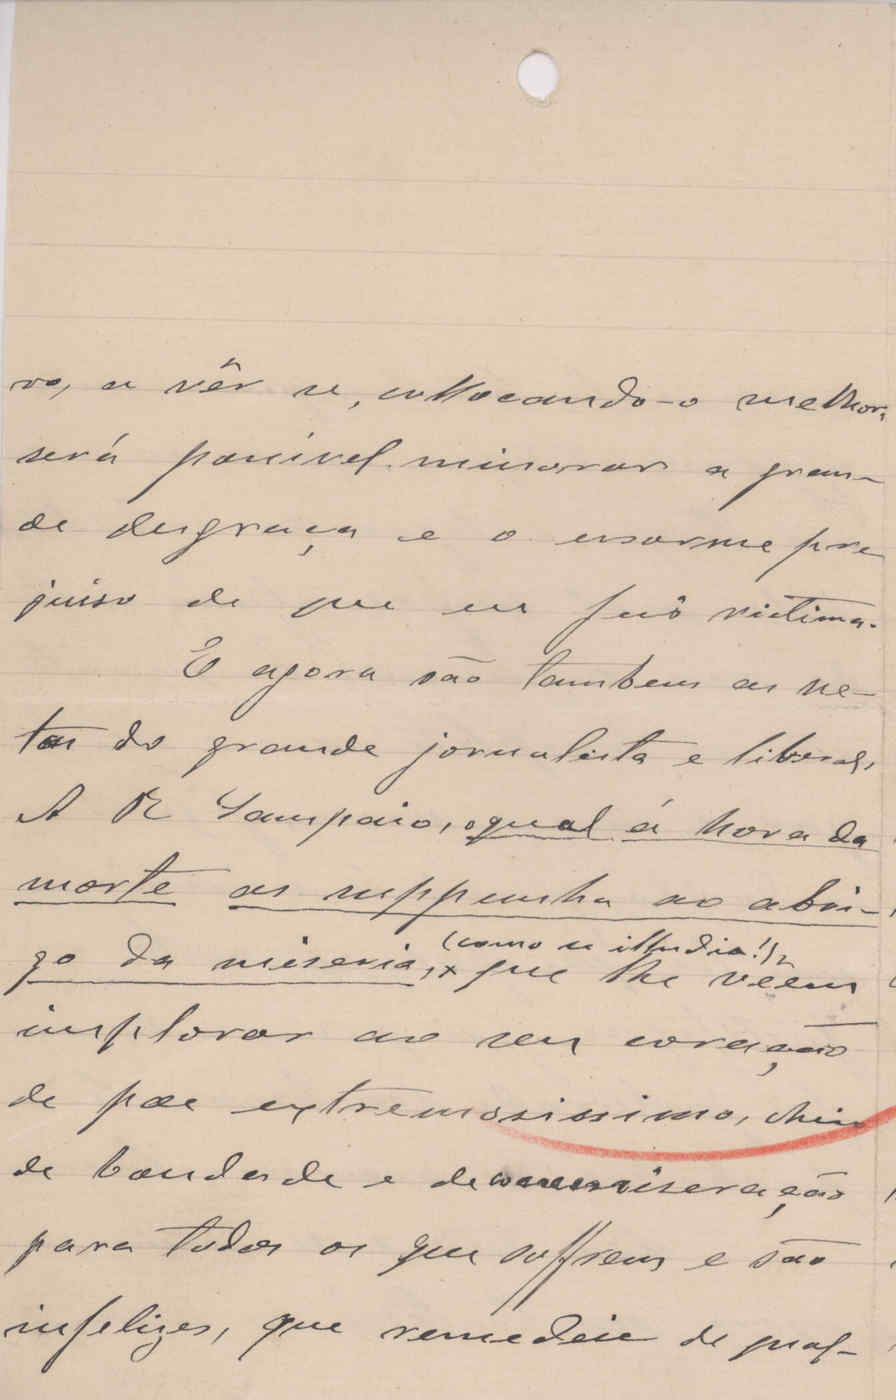 ro, a vêr se, collocando-o melhor,
será possivel minorar a gran-
de desgraça e o enorme pre
juiso de que eu fui victima.
E agora são tambem as ne-
tas do grande jornalista e liberal,
A R Sampaio, o qual á hora da
morte as suppunha ao abri-
go da miseria, (como se illudia!), + que lhe vêem
implorar ao seu coração
de pae extremosissimo, cheio
de bondade e de commiseração
para todos os que soffrem e são
infelizes, que remedeie de qual-